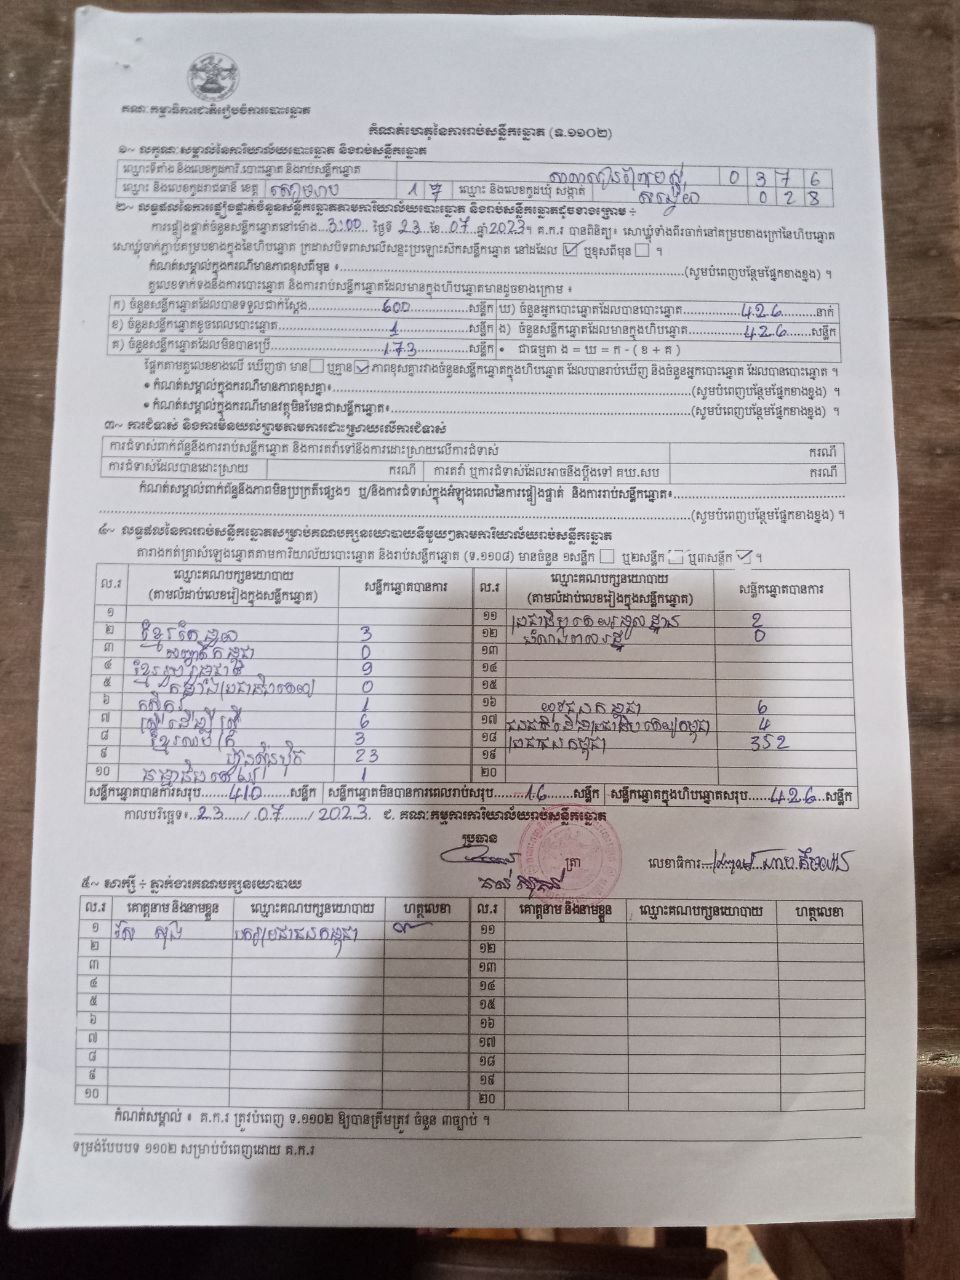 គណៈកម្មាធិការជាតិរៀបចំការបោះឆ្នោត
កំណត់ហេតុនៃការរាប់សន្លឹកឆ្នោត (ទ.១១០២)
១~ លក្ខណៈសម្គាល់នៃការិយាល័យបោះឆ្នោត និងរាប់សន្លឹកឆ្នោត
ឈ្មោះទីតាំង និងលេខកូដការិ.បោះឆ្នោត និងរាប់សន្លឹកឆ្នោត 0 3 7 6
ឈ្មោះ និងលេខកូដរាជធានី ខេត្ត សៀមរាប 1 7 ឈ្មោះ និងលេខកូដឃុំ សង្កាត់ 0 2 8
២~ លទ្ធផលនៃការផ្ទៀងផ្ទាត់ចំនួនសន្លឹកឆ្នោតតាមការិយាល័យបោះឆ្នោត និងរាប់សន្លឹកឆ្នោតដូចខាងក្រោម ៖
ការផ្ទៀងផ្ទាត់ចំនួនសន្លឹកឆ្នោតនៅម៉ោង 3:00 ថ្ងៃទី 23 ខែ 07 ឆ្នាំ 2023។ គ.ក.រ បានពិនិត្យ៖ សោឃ្លុំទាំងពីរចាក់នៅគម្របខាងក្រៅនៃហិបឆ្នោត
សោឃ្លុំចាក់ភ្ជាប់គម្របខាងក្នុងនៃហិបឆ្នោត ក្រដាសបិទពាសលើសន្ទះប្រឡោះស៊កសន្លឹកឆ្នោត នៅដដែល ☑ ឬខុសពីមុន ☐ ។
កំណត់សម្គាល់ក្នុងករណីមានភាពខុសពីមុន ៖ (សូមបំពេញបន្ថែមផ្នែកខាងខ្នង) ។
តួលេខទាក់ទងនឹងការបោះឆ្នោត និងការរាប់សន្លឹកឆ្នោតដែលមានក្នុងហិបឆ្នោតមានដូចខាងក្រោម ៖
ក) ចំនួនសន្លឹកឆ្នោតដែលបានទទួលជាក់ស្តែង 600 សន្លឹក ឃ) ចំនួនអ្នកបោះឆ្នោតដែលបានបោះឆ្នោត 426 នាក់
ខ) ចំនួនសន្លឹកឆ្នោតខូចពេលបោះឆ្នោត 1 សន្លឹក ង) ចំនួនសន្លឹកឆ្នោតដែលមានក្នុងហិបឆ្នោត 426 សន្លឹក
គ) ចំនួនសន្លឹកឆ្នោតដែលមិនបានប្រើ 173 សន្លឹក • ជាធម្មតា ង = ឃ = ក - ( ខ + គ )
ផ្អែកតាមតួលេខខាងលើ ឃើញថា មាន ☐ ឬគ្មាន ☑ ភាពខុសគ្នារវាងចំនួនសន្លឹកឆ្នោតក្នុងហិបឆ្នោត ដែលបានរាប់ឃើញ និងចំនួនអ្នកបោះឆ្នោត ដែលបានបោះឆ្នោត ។
• កំណត់សម្គាល់ក្នុងករណីមានភាពខុសគ្នា៖ (សូមបំពេញបន្ថែមផ្នែកខាងខ្នង) ។
• កំណត់សម្គាល់ក្នុងករណីមានវត្ថុមិនមែនជាសន្លឹកឆ្នោត៖ (សូមបំពេញបន្ថែមផ្នែកខាងខ្នង) ។
៣~ ការជំទាស់ និងការមិនយល់ព្រមតាមការដោះស្រាយលើការជំទាស់
ការជំទាស់ពាក់ព័ន្ធនឹងការរាប់សន្លឹកឆ្នោត និងការតវ៉ាទៅនឹងការដោះស្រាយលើការជំទាស់ ករណី
ការជំទាស់ដែលបានដោះស្រាយ ករណី ការតវ៉ា ឬការជំទាស់ដែលអាចនឹងប្តឹងទៅ គឃ.សប ករណី
កំណត់សម្គាល់ពាក់ព័ន្ធនឹងភាពមិនប្រក្រតីផ្សេងៗ ឬ/និងការជំទាស់ក្នុងអំឡុងពេលនៃការផ្ទៀងផ្ទាត់ និងការរាប់សន្លឹកឆ្នោត៖
(សូមបំពេញបន្ថែមផ្នែកខាងខ្នង) ។
៤~ លទ្ធផលនៃការរាប់សន្លឹកឆ្នោតសម្រាប់គណបក្សនយោបាយនីមួយៗតាមការិយាល័យរាប់សន្លឹកឆ្នោត
តារាងកត់ត្រាសំឡេងឆ្នោតតាមការិយាល័យបោះឆ្នោត និងរាប់សន្លឹកឆ្នោត (ទ.១១០៨) មានចំនួន ១សន្លឹក ☐ ឬ២សន្លឹក ☐ ឬ៣សន្លឹក ☑ ។
ល.រ ឈ្មោះគណបក្សនយោបាយ (តាមលំដាប់លេខរៀងក្នុងសន្លឹកឆ្នោត) សន្លឹកឆ្នោតបានការ ល.រ ឈ្មោះគណបក្សនយោបាយ (តាមលំដាប់លេខរៀងក្នុងសន្លឹកឆ្នោត) សន្លឹកឆ្នោតបានការ
១ ១១ 2
២ 3 ១២ 0
៣ 0 ១៣
៤ 9 ១៤
៥ 0 ១៥
៦ កសិករ 1 ១៦ 6
៧ ស្ត្រីដើម្បីស្ត្រី 6 ១៧ 4
៨ 3 ១៨ ប្រជាជនកម្ពុជា 352
៩ ហ្វ៊ុនស៊ិនប៉ិច 23 ១៩
១០ 1 ២០
សន្លឹកឆ្នោតបានការសរុប 410 សន្លឹក សន្លឹកឆ្នោតមិនបានការពេលរាប់សរុប 16 សន្លឹក សន្លឹកឆ្នោតក្នុងហិបឆ្នោតសរុប 426 សន្លឹក
កាលបរិច្ឆេទ៖ 23 / 07 / 2023. ជ. គណៈកម្មការការិយាល័យរាប់សន្លឹកឆ្នោត
ប្រធាន
ត្រា លេខាធិការ
៥~ សាក្សី ៖ ភ្នាក់ងារគណបក្សនយោបាយ
ល.រ គោត្តនាម និងនាមខ្លួន ឈ្មោះគណបក្សនយោបាយ ហត្ថលេខា ល.រ គោត្តនាម និងនាមខ្លួន ឈ្មោះគណបក្សនយោបាយ ហត្ថលេខា
១ បក្សប្រជាជនកម្ពុជា ១១
២ ១២
៣ ១៣
៤ ១៤
៥ ១៥
៦ ១៦
៧ ១៧
៨ ១៨
៩ ១៩
១០ ២០
កំណត់សម្គាល់ ៖ គ.ក.រ ត្រូវបំពេញ ទ.១១០២ ឱ្យបានត្រឹមត្រូវ ចំនួន ៣ច្បាប់ ។
ទម្រង់បែបបទ ១១០២ សម្រាប់បំពេញដោយ គ.ក.រ